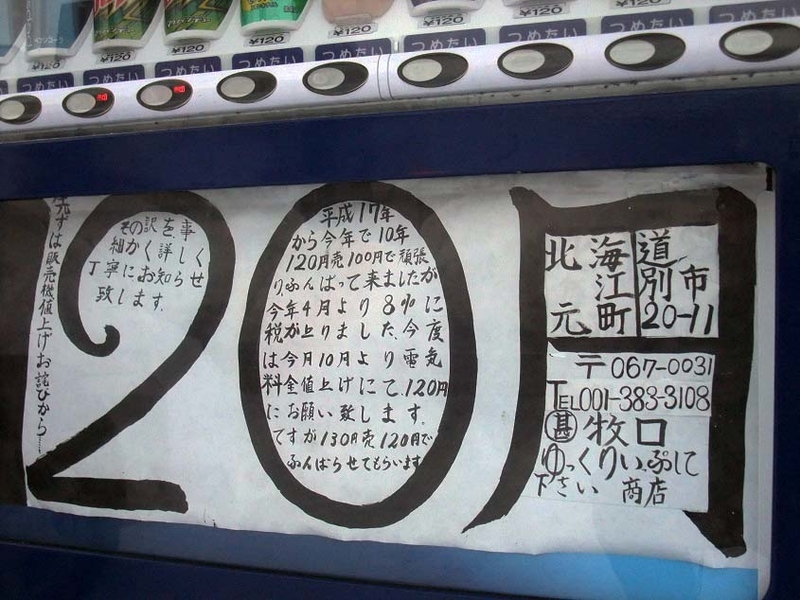 ¥120
¥120
¥120
¥120
¥120
¥120
¥120
¥120
つめたい
つめたい
つめたい
つめたい
つめたい
つめたい
つめたい
つめたい
20月
先ずは販売機値上げお詫びから……
その訳を事
細かく詳しく
丁寧にお知らせ
致します.
平成17年
から今年で10年
120円売100円で頑張
りふんばって来ましたが
今年4月より8%に
税が上りました、今度
は今月10月より電気
料金値上げにて、120円
にお願い致します.
ですが130円売120円で
ふんばらせてもらいます
北海道
江別市
元町20-11
〒067-0031
TEL001-383-3108
甚牧口
ゆっくりいっぷして
下さい 商店